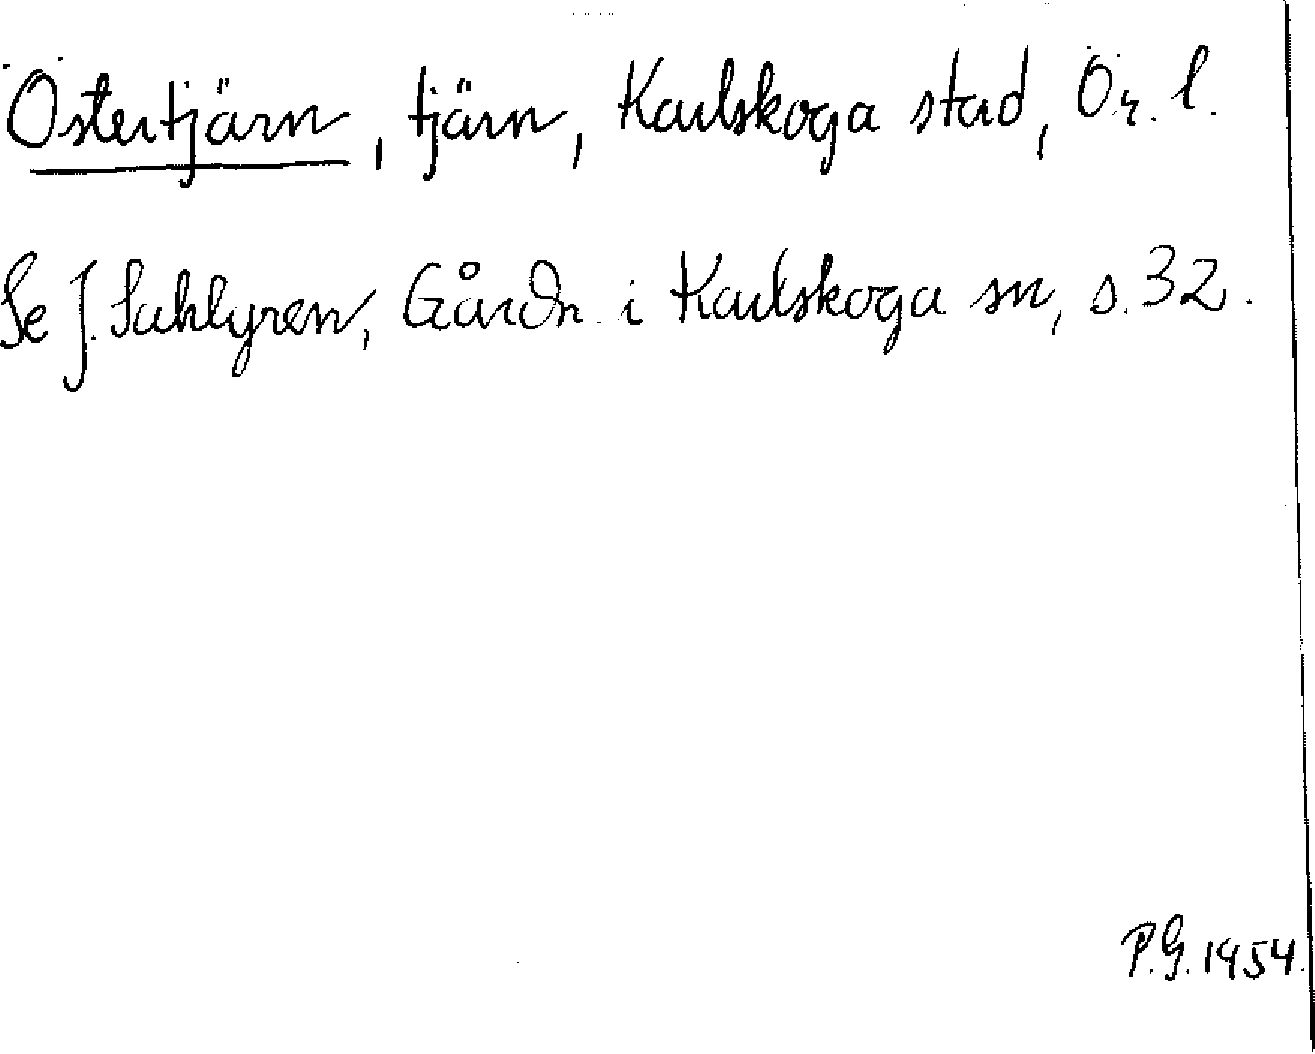 Östertjärn, tjärn, Karlskoga stad, Ör. l.
Se J. Sahlgren, Gårdn. i Karlskoga sn, s. 32.
P.G. 1954.